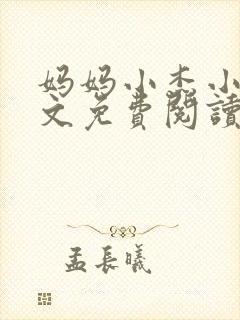 妈妈小杰小
文免費閱讀
孟長曦